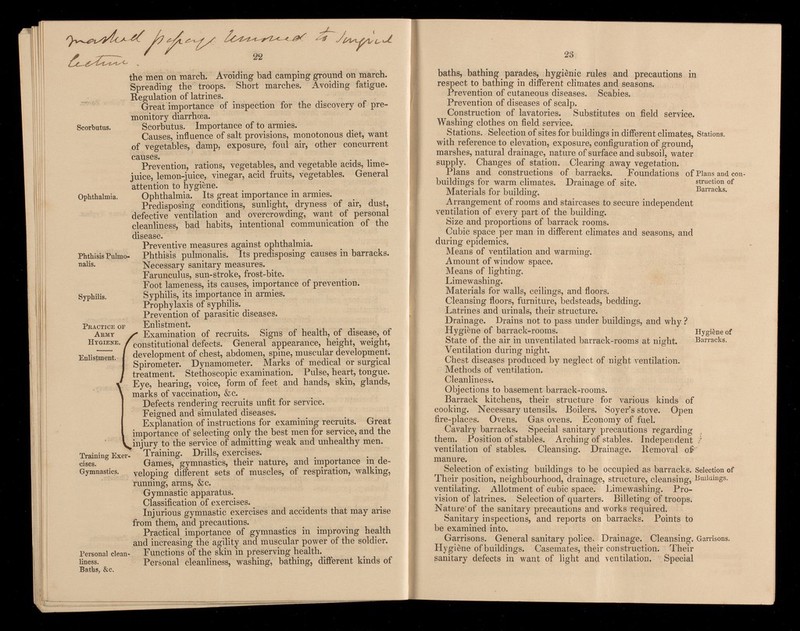 marked passage removed to Surgical
Lecture.
22
the men on march. Avoiding bad camping ground on march.
Spreading the troops. Short marches. Avoiding fatigue.
Regulation of latrines.
Great importance of inspection for the discovery of pre-
monitory diarrhœa.
Scorbutus. Scorbutus. Importance of to armies.
Causes, influence of salt provisions, monotonous diet, want
of vegetables, damp, exposure, foul air, other concurrent
causes.
Prevention, rations, vegetables, and vegetable acids, lime-
juice, lemon-juice, vinegar, acid fruits, vegetables. General
attention to hygiène.
Ophthalmia. Ophthalmia. Its great importance in armies.
Predisposing conditions, sunlight, dryness of air, dust,
defective ventilation and overcrowding, want of personal
cleanliness, bad habits, intentional communication of the
disease.
Preventive measures against ophthalmia.
Phthisis Pulmo- Phthisis pulmonalis. Its predisposing causes in barracks.
nalis. Necessary sanitary measures.
Farunculus, sun-stroke, frost-bite.
Foot lameness, its causes, importance of prevention.
Syphilis. Syphilis, its importance in armies.
Prophylaxis of syphilis.
Prevention of parasitic diseases.
Practice of Enlistment.
Army Examination of recruits. Signs of health, of disease, of
Hygiene. constitutional defects. General appearance, height, weight,
Enlistment. development of chest, abdomen, spine, muscular development.
Spirometer. Dynamometer. Marks of medical or surgical
treatment. Stethoscopic examination. Pulse, heart, tongue.
Eye, hearing, voice, form of feet and hands, skin, glands,
marks of vaccination, &c.
Defects rendering recruits unfit for service.
Feigned and simulated diseases.
Explanation of instructions for examining recruits. Great
importance of selecting only the best men for service, and the
injury to the service of admitting weak and unhealthy men.
Training Exer- Training. Drills, exercises.
cises. Games, gymnastics, their nature, and importance in de-
Gymnastics. veloping different sets of muscles, of respiration, walking,
running, arms, &c.
Gymnastic apparatus.
Classification of exercises.
Injurious gymnastic exercises and accidents that may arise
from them, and precautions.
Practical importance of gymnastics in improving health
and increasing the agility and muscular power of the soldier.
Personal clean- Functions of the skin in preserving health.
liness. Personal cleanliness, washing, bathing, different kinds of
Baths, &c.
23
baths, bathing parades, hygiènic rules and precautions in
respect to bathing in different climates and seasons.
Prevention of cutaneous diseases. Scabies.
Prevention of diseases of scalp.
Construction of lavatories. Substitutes on field service.
Washing clothes on field service.
Stations. Selection of sites for buildings in different climates, Stations.
with reference to elevation, exposure, configuration of ground,
marshes, natural drainage, nature of surface and subsoil, water
supply. Changes of station. Clearing away vegetation.
Plans and constructions of barracks. Foundations of Plans and con-
buildings for warm climates. Drainage of site. struction of
Materials for building. Barracks.
Arrangement of rooms and staircases to secure independent
ventilation of every part of the building.
Size and proportions of barrack rooms.
Cubic space per man in different climates and seasons, and
during epidemics.
Means of ventilation and warming.
Amount of window space.
Means of lighting.
Limewashing.
Materials for walls, ceilings, and floors.
Cleansing floors, furniture, bedsteads, bedding.
Latrines and urinals, their structure.
Drainage. Drains not to pass under buildings, and why?
Hygiène of barrack-rooms. Hygiène of
State of the air in unventilated barrack-rooms at night. Barracks.
Ventilation during night.
Chest diseases produced by neglect of night ventilation.
Methods of ventilation.
Cleanliness.
Objections to basement barrack-rooms.
Barrack kitchens, their structure for various kinds of
cooking. Necessary utensils. Boilers. Soyer's stove. Open
fire-places. Ovens. Gas ovens. Economy of fuel.
Cavalry barracks. Special sanitary precautions regarding
them. Position of stables. Arching of stables. Independent
ventilation of stables. Cleansing. Drainage. Removal of
manure.
Selection of existing buildings to be occupied as barracks. Selection of
Their position, neighbourhood, drainage, structure, cleansing, Buildings.
ventilating. Allotment of cubic space. Limewashing. Pro-
vision of latrines. Selection of quarters. Billeting of troops.
Nature of the sanitary precautions and works required.
Sanitary inspections, and reports on barracks. Points to
be examined into.
Garrisons. General sanitary police. Drainage. Cleansing. Garrisons.
Hygiène of buildings. Casemates, their construction. Their
sanitary defects in want of light and ventilation. Special